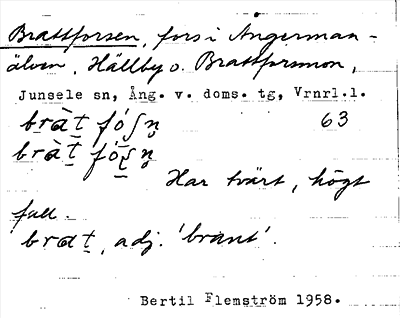 Brattforsen, fors i Ångerman-
älven, Hällby o. Brattforsmon,
Junsele sn, Ång. v. doms. tg, Vrnrl.l.
bràt fó∫n̥ 63
bràt fóʂn̥
Har tvärt, högt
fall.
brat, adj. 'brant'.
Bertil Flemström 1958.